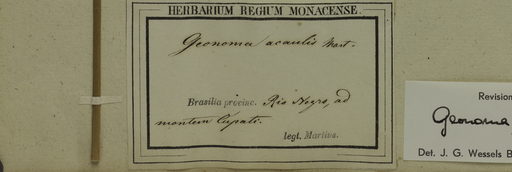 HERBARIUM REGIUM MONACENSE.
Geonoma acaulis Mart.
Brasilia provinc. Rio Negro, ad
montem Cupati.
legt. Martius.
Revision
Geonoma
Det. J. G. Wessels B